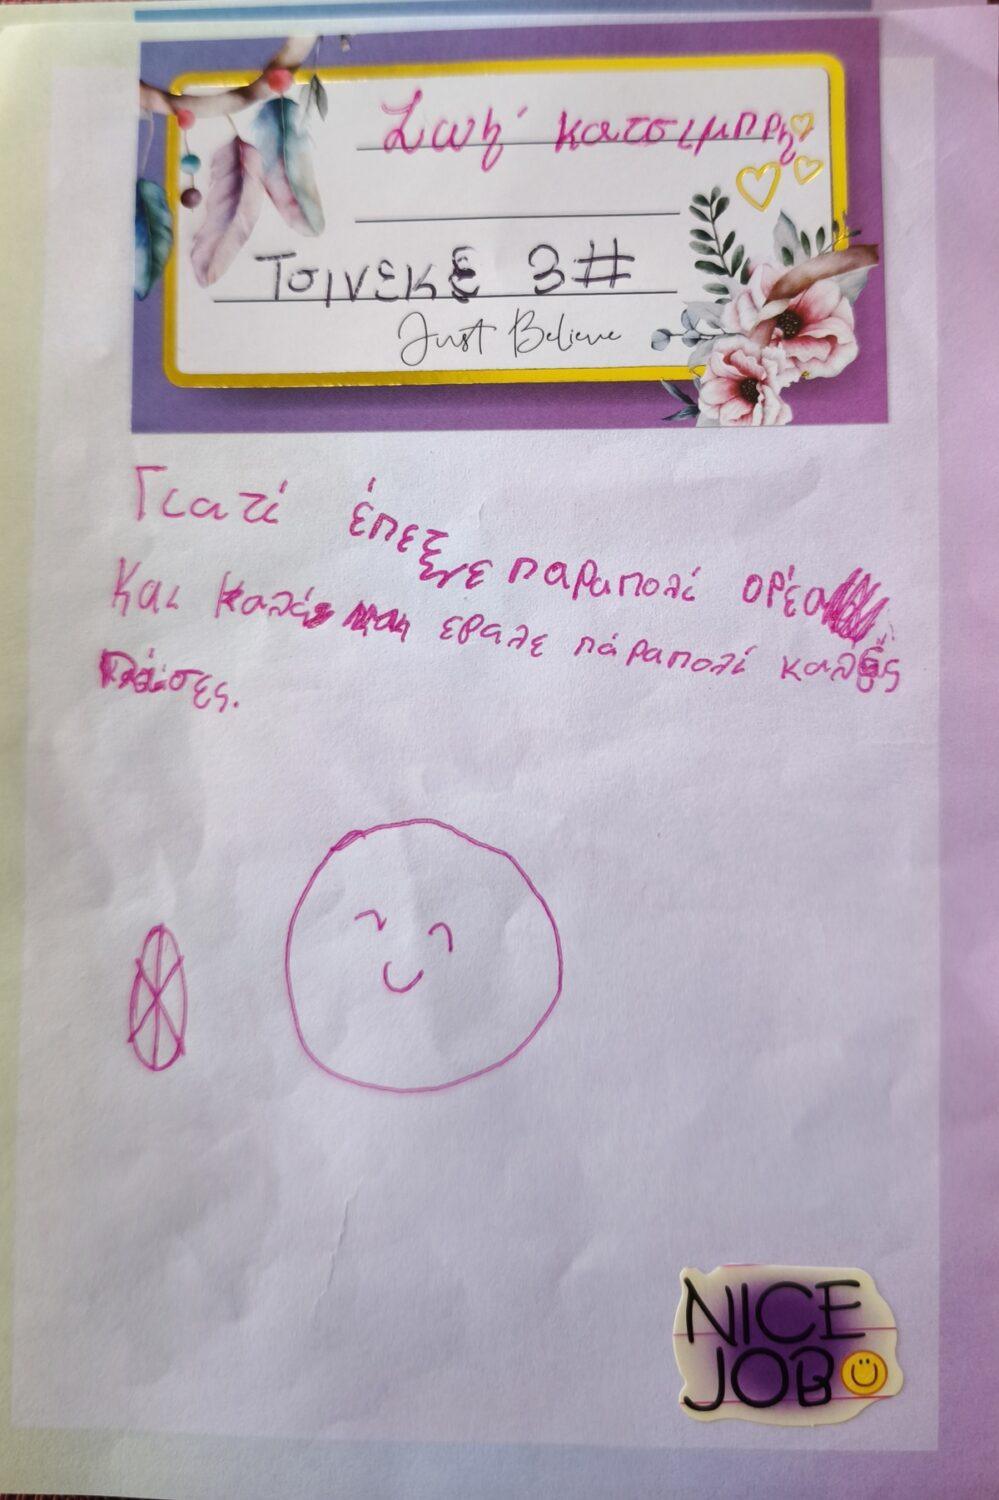 Ζωή κατσιμπρη
Τσινεκε 3#
Just Believe
Γιατί έπεξε παραπολί ορέα
και καλά και έβαλε πάραπολί καλές
πάσες.
NICE
JOB